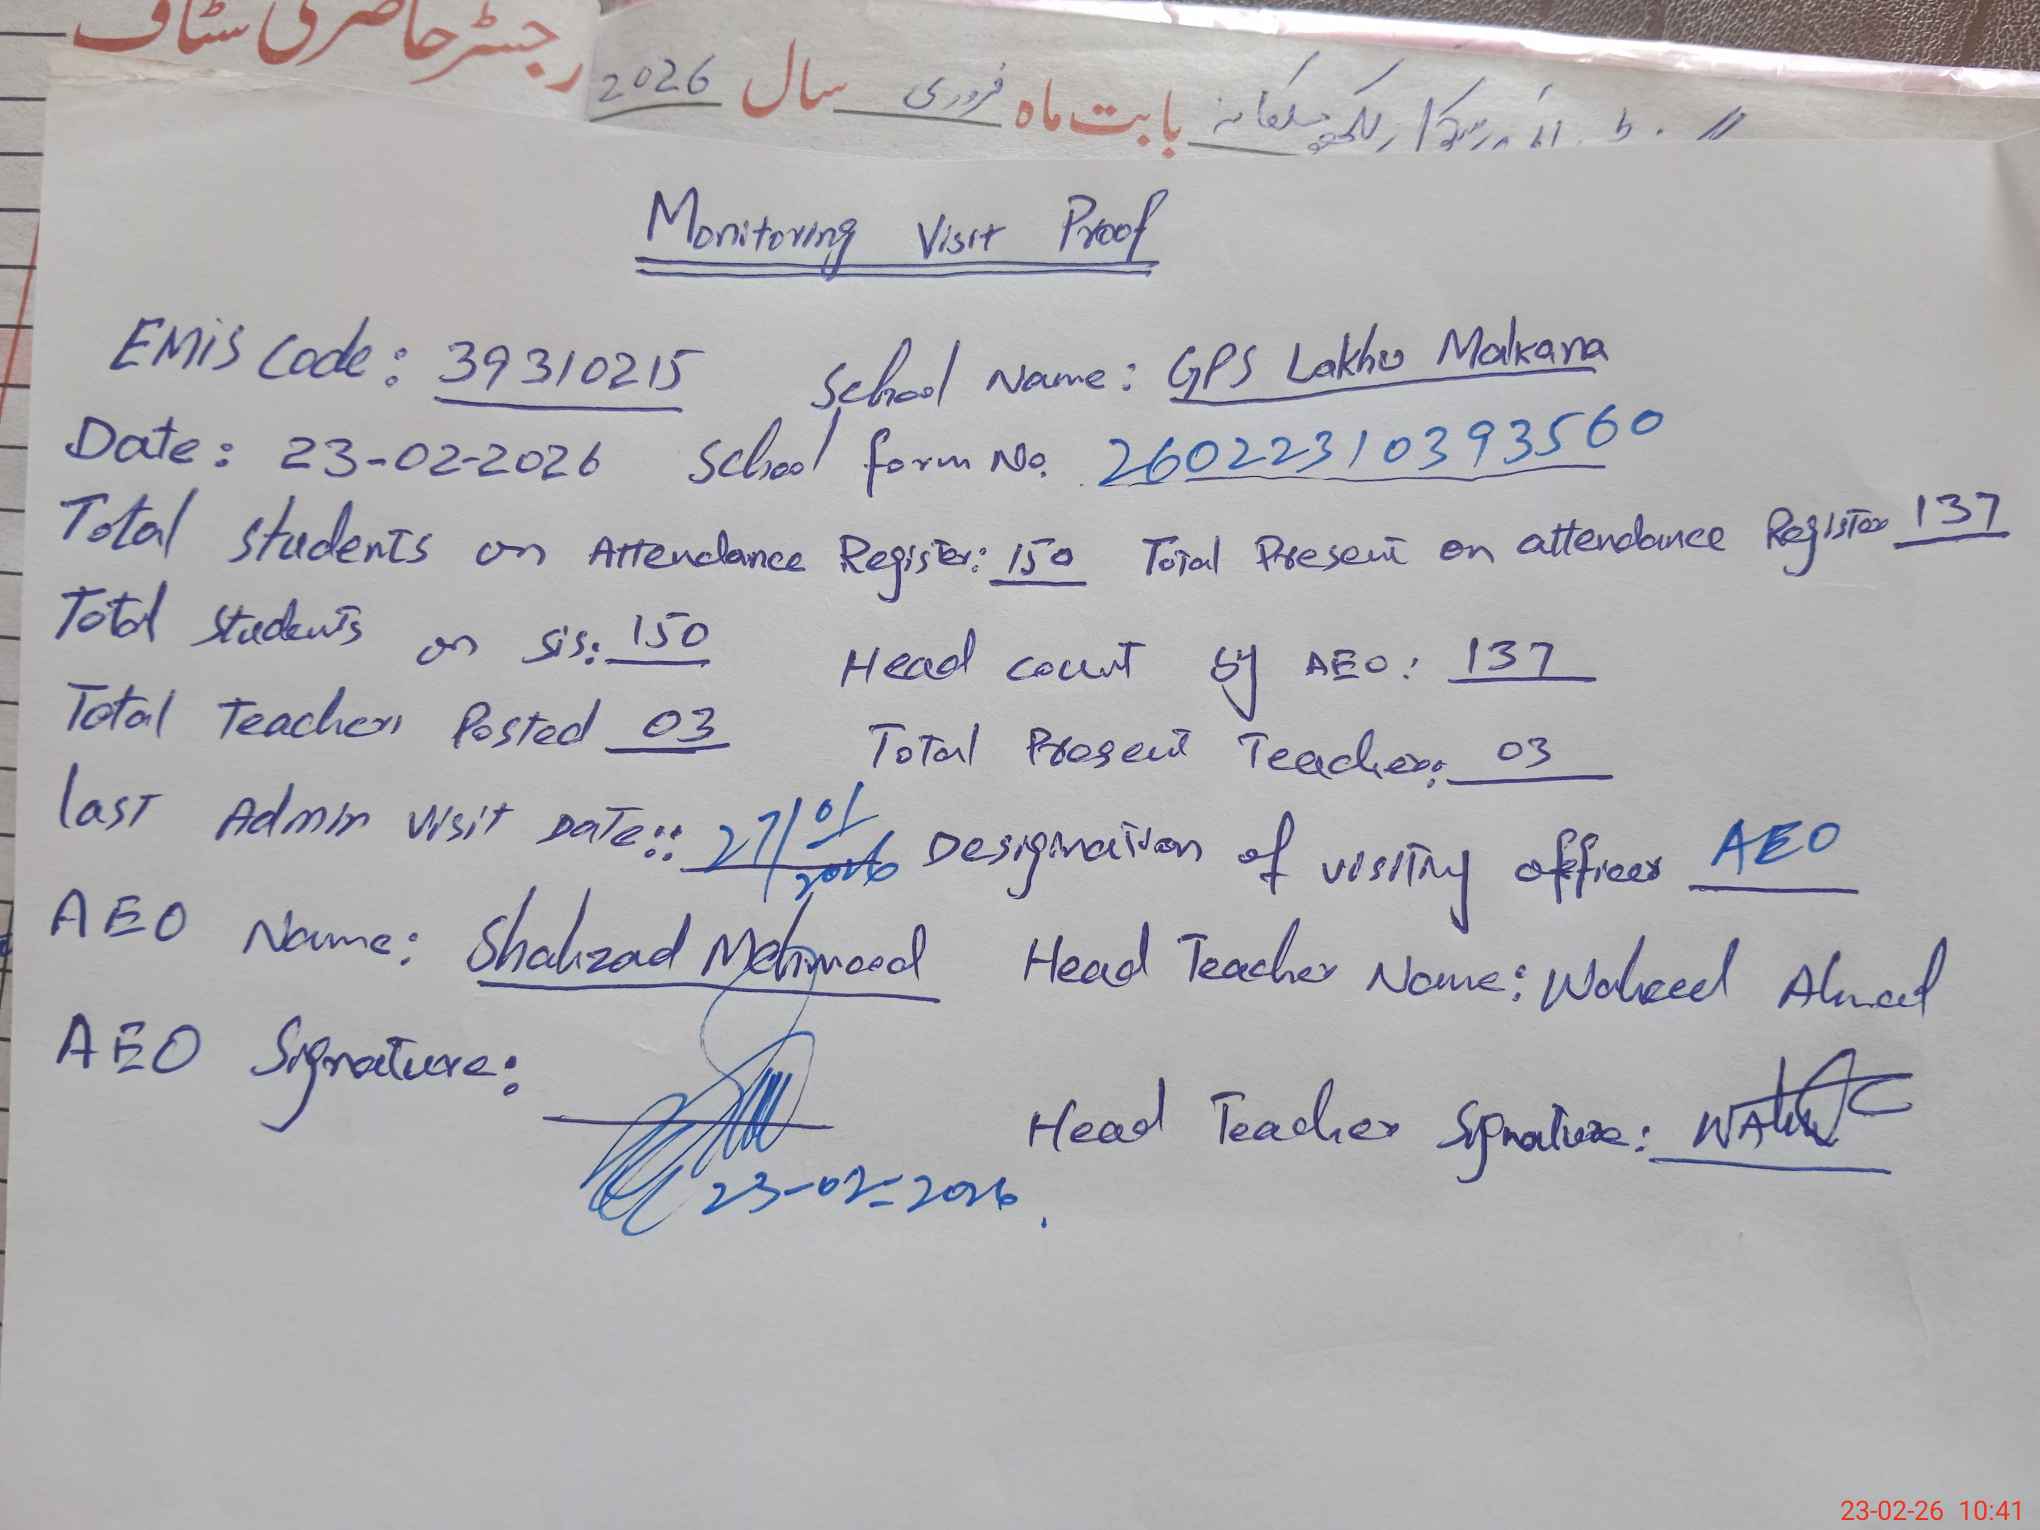 رجسٹر حاضری سٹاف
بابت ماہ فروری سال 2026
Monitoring Visit Proof
EMIS Code: 39310215 School Name: GPS Lakhu Malkana
Date: 23-02-2026 School form No. 26022310393560
Total Students on Attendance Register: 150 Total Present on attendance Register 137
Total Students on SIS: 150 Head count by AEO: 137
Total Teacher Posted 03 Total Present Teacher: 03
Last Admin Visit Date:: 27/01/2026 Designation of visiting officer AEO
AEO Name: Shahzad Mehmood Head Teacher Name: Waheed Ahmed
AEO Signature: Head Teacher Signature:
23-02-2026.
23-02-26 10:41